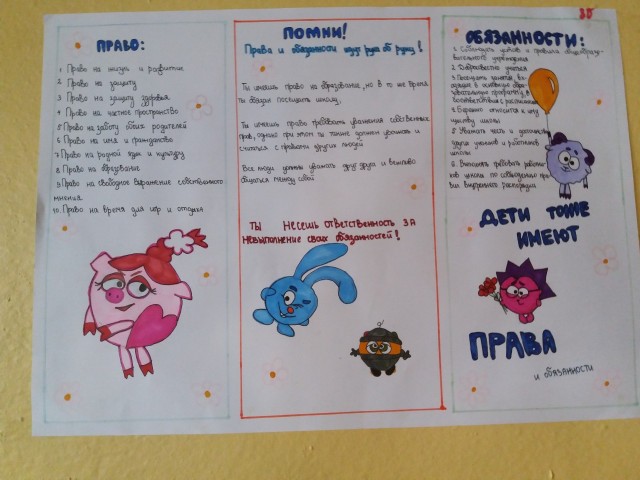 ПРАВО:
1. Право на жизнь и развитие
2. Право на защиту
3. Право на защиту здоровья
4. Право на личное пространство
5. Право на заботу обоих родителей
6. Право на имя и гражданство
7. Право на родной язык и культуру
8. Право на образование
9. Право на свободное выражение собственного
мнения
10. Право на время для игр и отдыха
ПОМНИ!
Права и обязанности идут рука об руку!
Ты имеешь право на образование, но в то же время
ты обязан посещать школу.
Ты имеешь право требовать уважения собственных
прав, однако при этом ты также должен уважать и
считаться с правами других людей
Все люди должны уважать друг друга и вежливо
общаться между собой
ТЫ НЕСЕШЬ ОТВЕТСТВЕННОСТЬ ЗА
НЕВЫПОЛНЕНИЕ СВОИХ ОБЯЗАННОСТЕЙ!
35
ОБЯЗАННОСТИ:
1. Соблюдать устав и правила общеобразо-
вательного учреждения
2. Добросовестно учиться
3. Посещать занятия,
в основную обра-
зовательную программу, в
соответствии с расписанием
4. Бережно относится к иму
ществу школы
5. Уважать честь и достоинство
других учеников и работников
школы
6. Выполнять требования работни-
ков школы по соблюдению пра-
вил внутреннего распорядка
ДЕТИ ТОЖЕ
ИМЕЮТ
ПРАВА
и обязанности